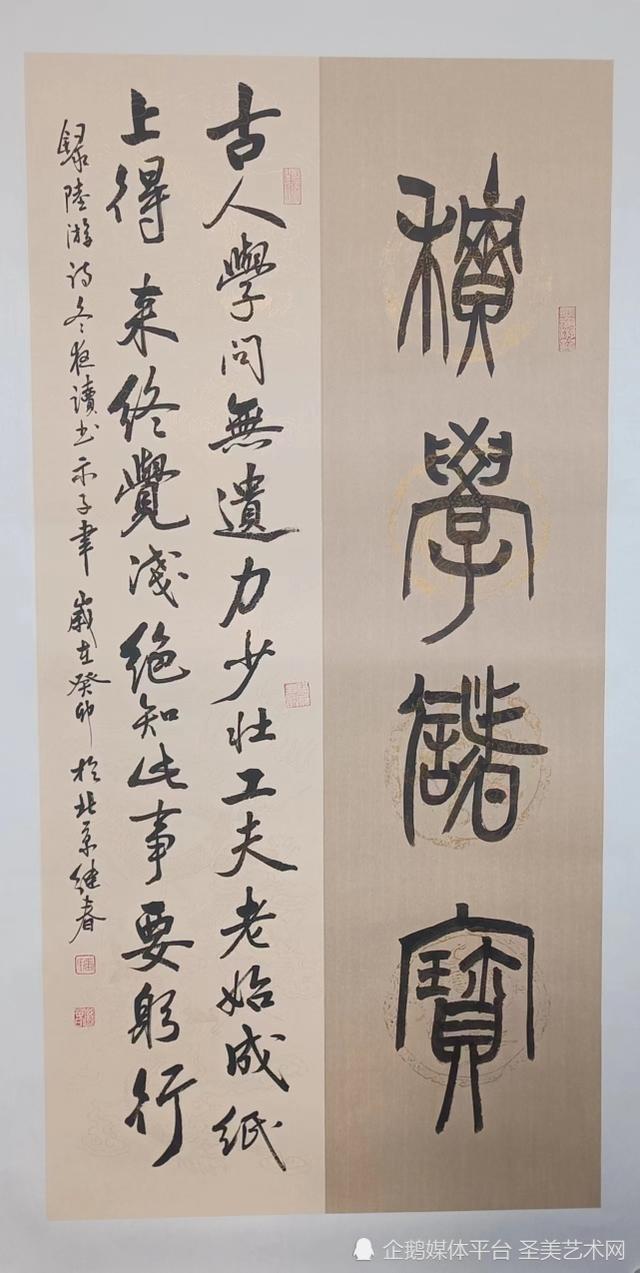 積學儲寶
古人學問無遺力少壯工夫老始成紙
上得来終覺淺絕知此事要躬行
録陸游诗冬夜讀书示子聿 歲在癸卯 於北京继春
企鹅媒体平台 圣美艺术网